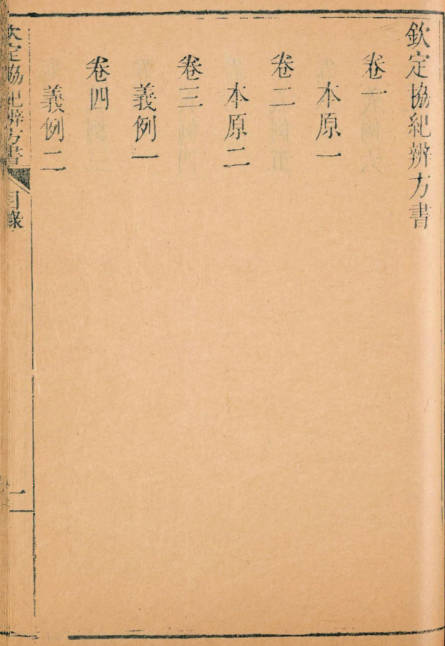 欽定協紀辨方書
卷一
本原一
卷二
本原二
卷三
義例一
卷四
義例二
欽定協紀辨方書
目錄